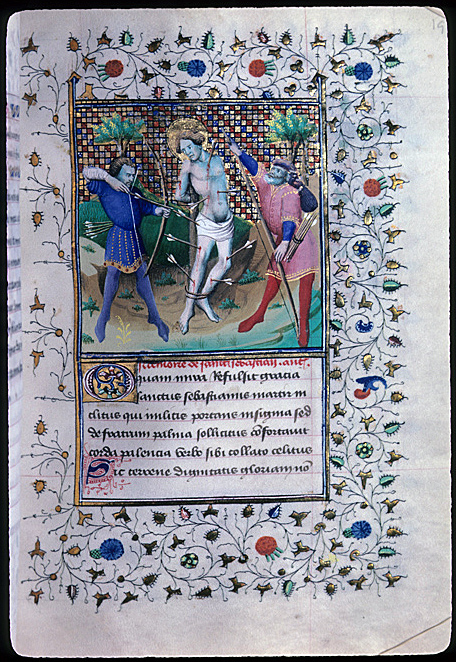 Memoire de saint sebastian. ant.
O quam mira refulsit gracia
sanctus sebastianus martir in
clitus qui militis portans insignia sed
de fratrum palmia sollicitus cōfortauit
corda palencia verbo sibi collato celitus
Sic terrene dignitatis gloriam no